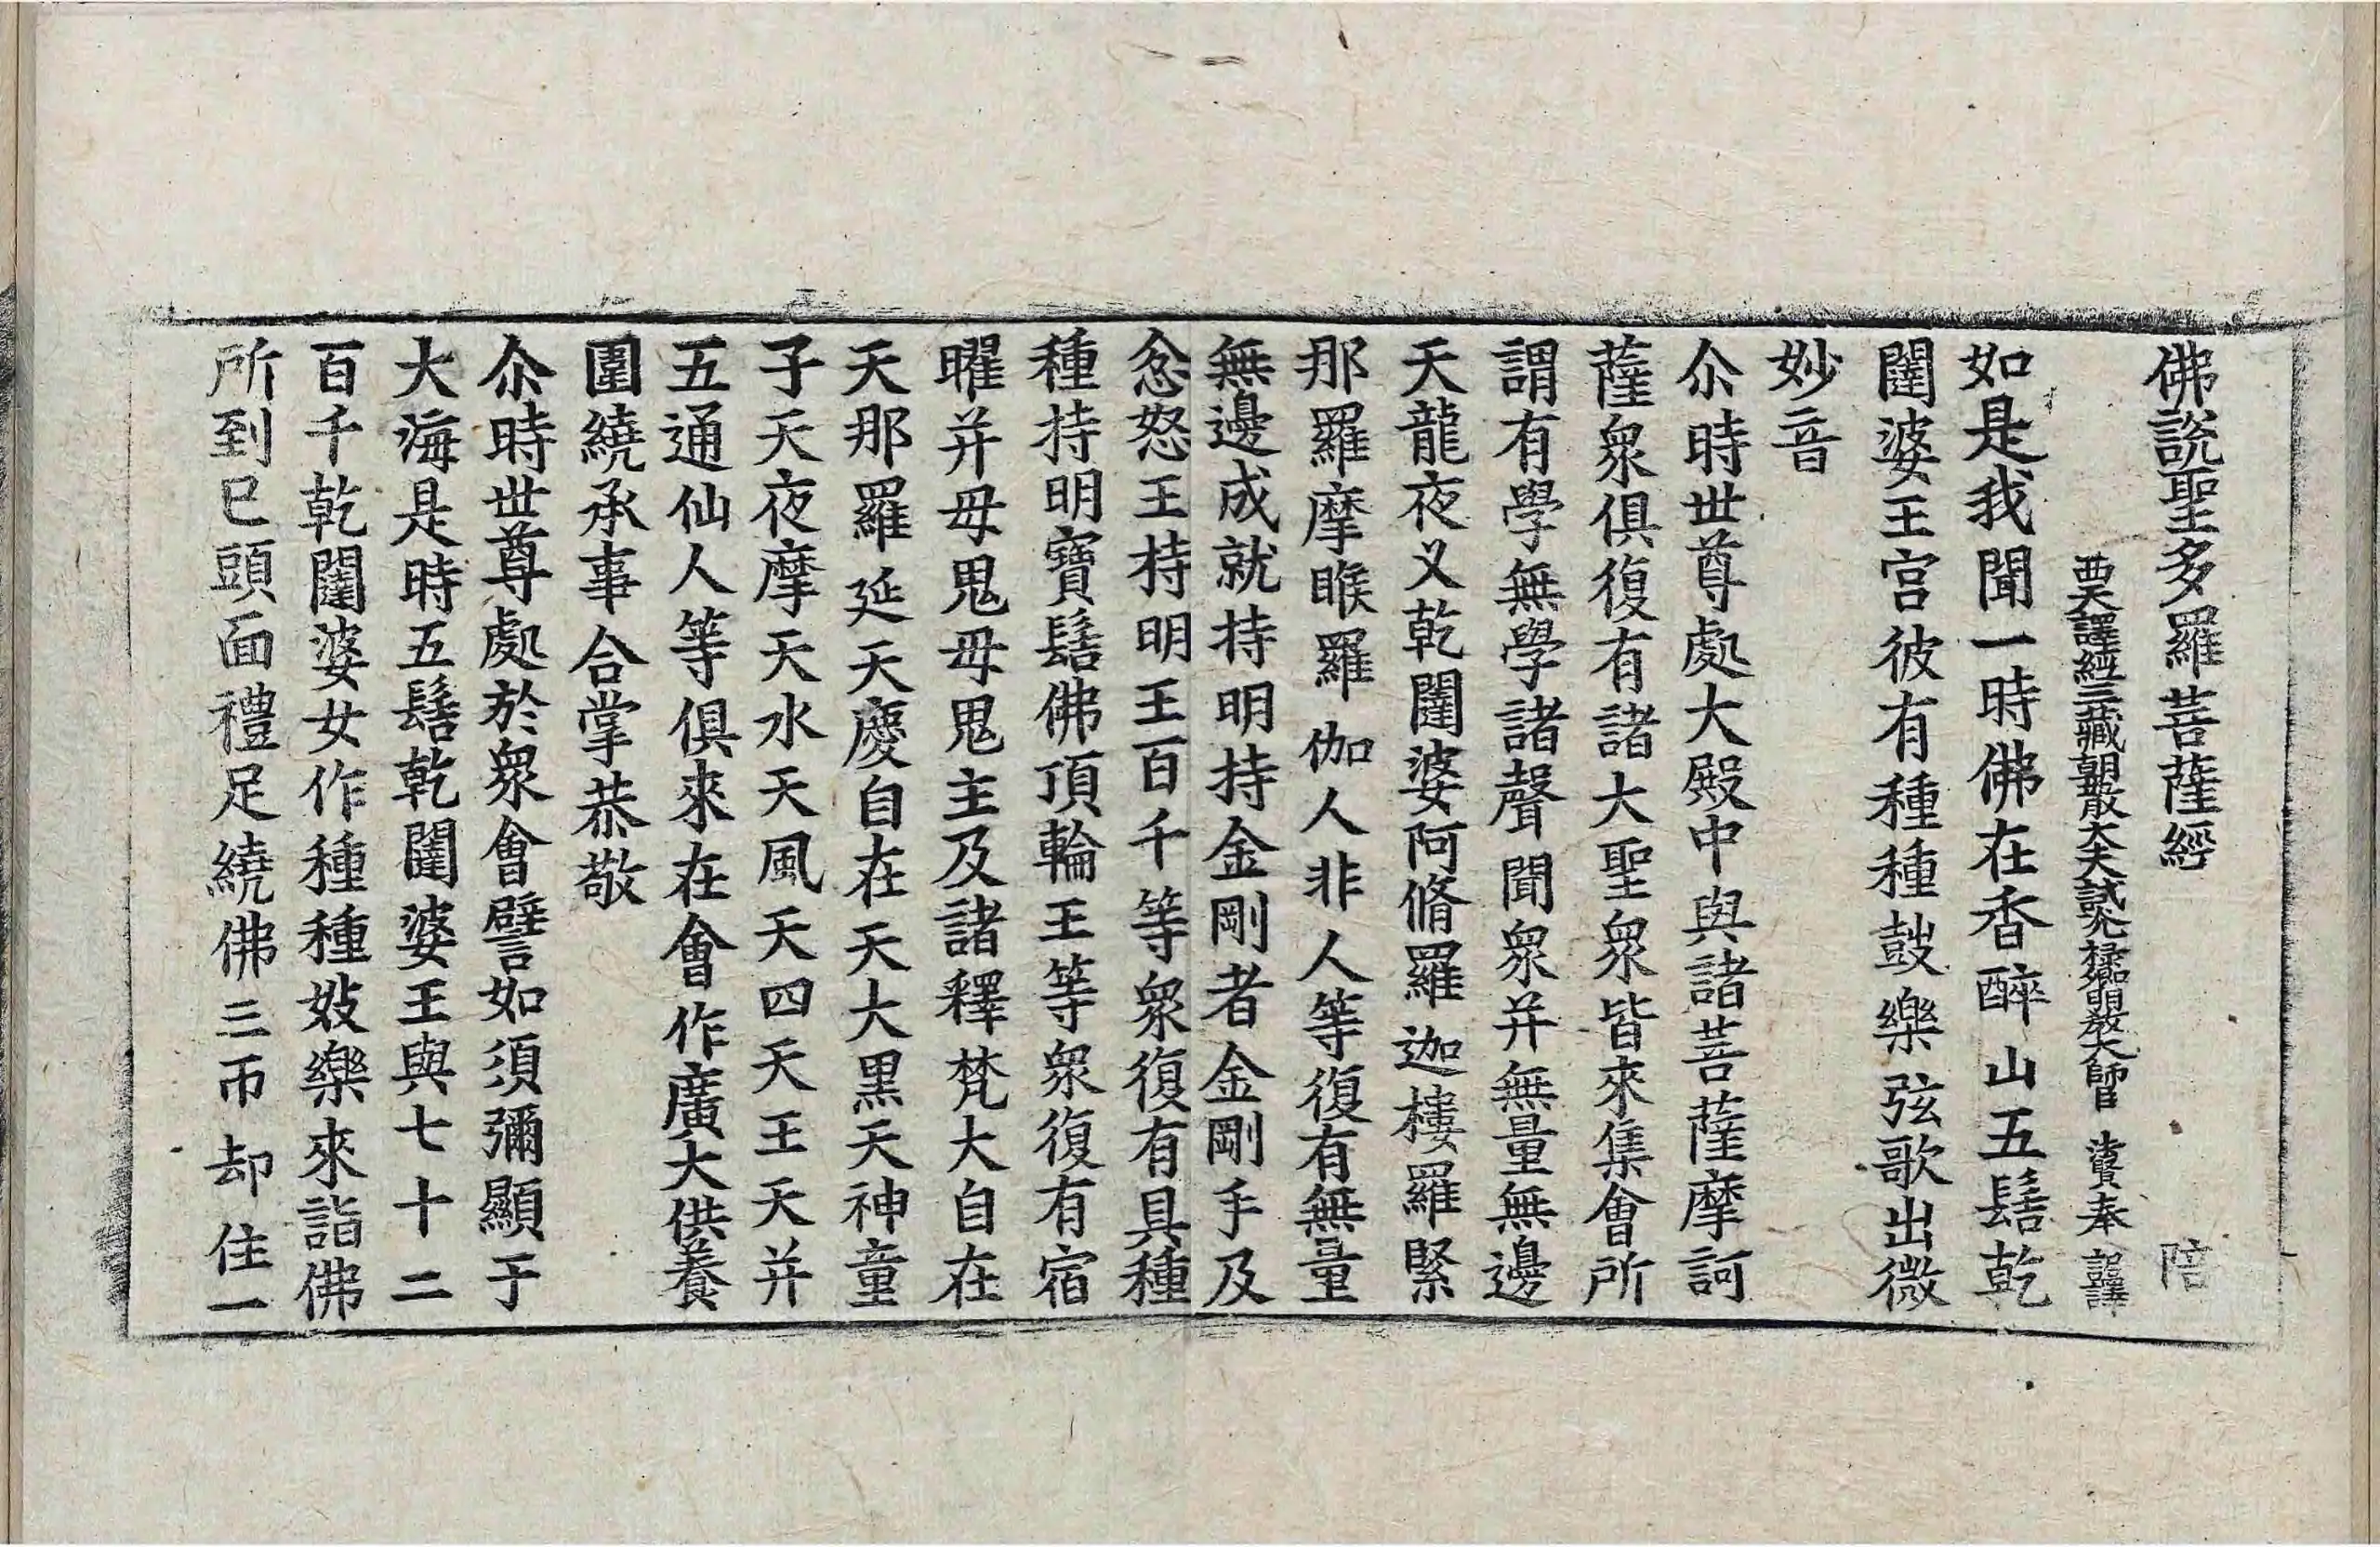 佛說聖多羅菩薩經 陪
西天譯經三藏朝散大夫試光祿卿明教大師臣 法賢奉 詔譯
如是我聞一時佛在香醉山五髻乾
闥婆王宮彼有種種鼓樂弦歌出微
妙音
尒時世尊處大殿中與諸菩薩摩訶
薩衆俱復有諸大聖衆皆來集會所
謂有學無學諸聲聞衆并無量無邊
天龍夜义乾闥婆阿脩羅迦樓羅緊
那羅摩睺羅伽人非人等復有無量
無邊成就持明持金剛者金剛手及
忿怒王持明王百千等衆復有具種
種持明寶髻佛頂輪王等衆復有宿
曜并母鬼母鬼主及諸釋梵大自在
天那羅延天慶自在天大黑天神童
子天夜摩天水天風天四天王天并
五通仙人等俱來在會作廣大供養
圍繞承事合掌恭敬
尒時世尊處於衆會譬如須彌顯于
大海是時五髻乾闥婆王與七十二
百千乾闥婆女作種種妓樂來詣佛
所到已頭面禮足繞佛三帀却住一